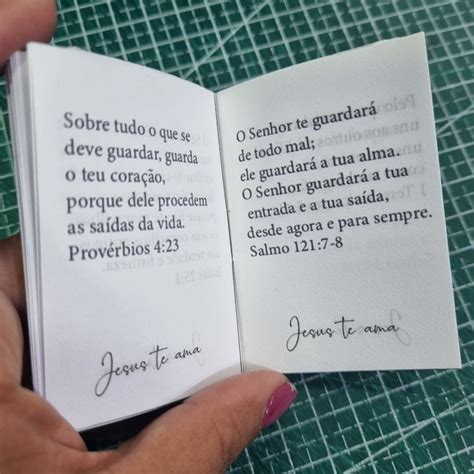 Sobre tudo o que se
deve guardar, guarda
o teu coração,
porque dele procedem
as saídas da vida.
Provérbios 4:23
Jesus te ama
O Senhor te guardará
de todo mal;
ele guardará a tua alma.
O Senhor guardará a tua
entrada e a tua saída,
desde agora e para sempre.
Salmo 121:7-8
Jesus te ama